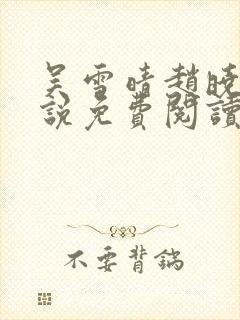 吴雪晴趙曉
說免費閱讀
不要背鍋